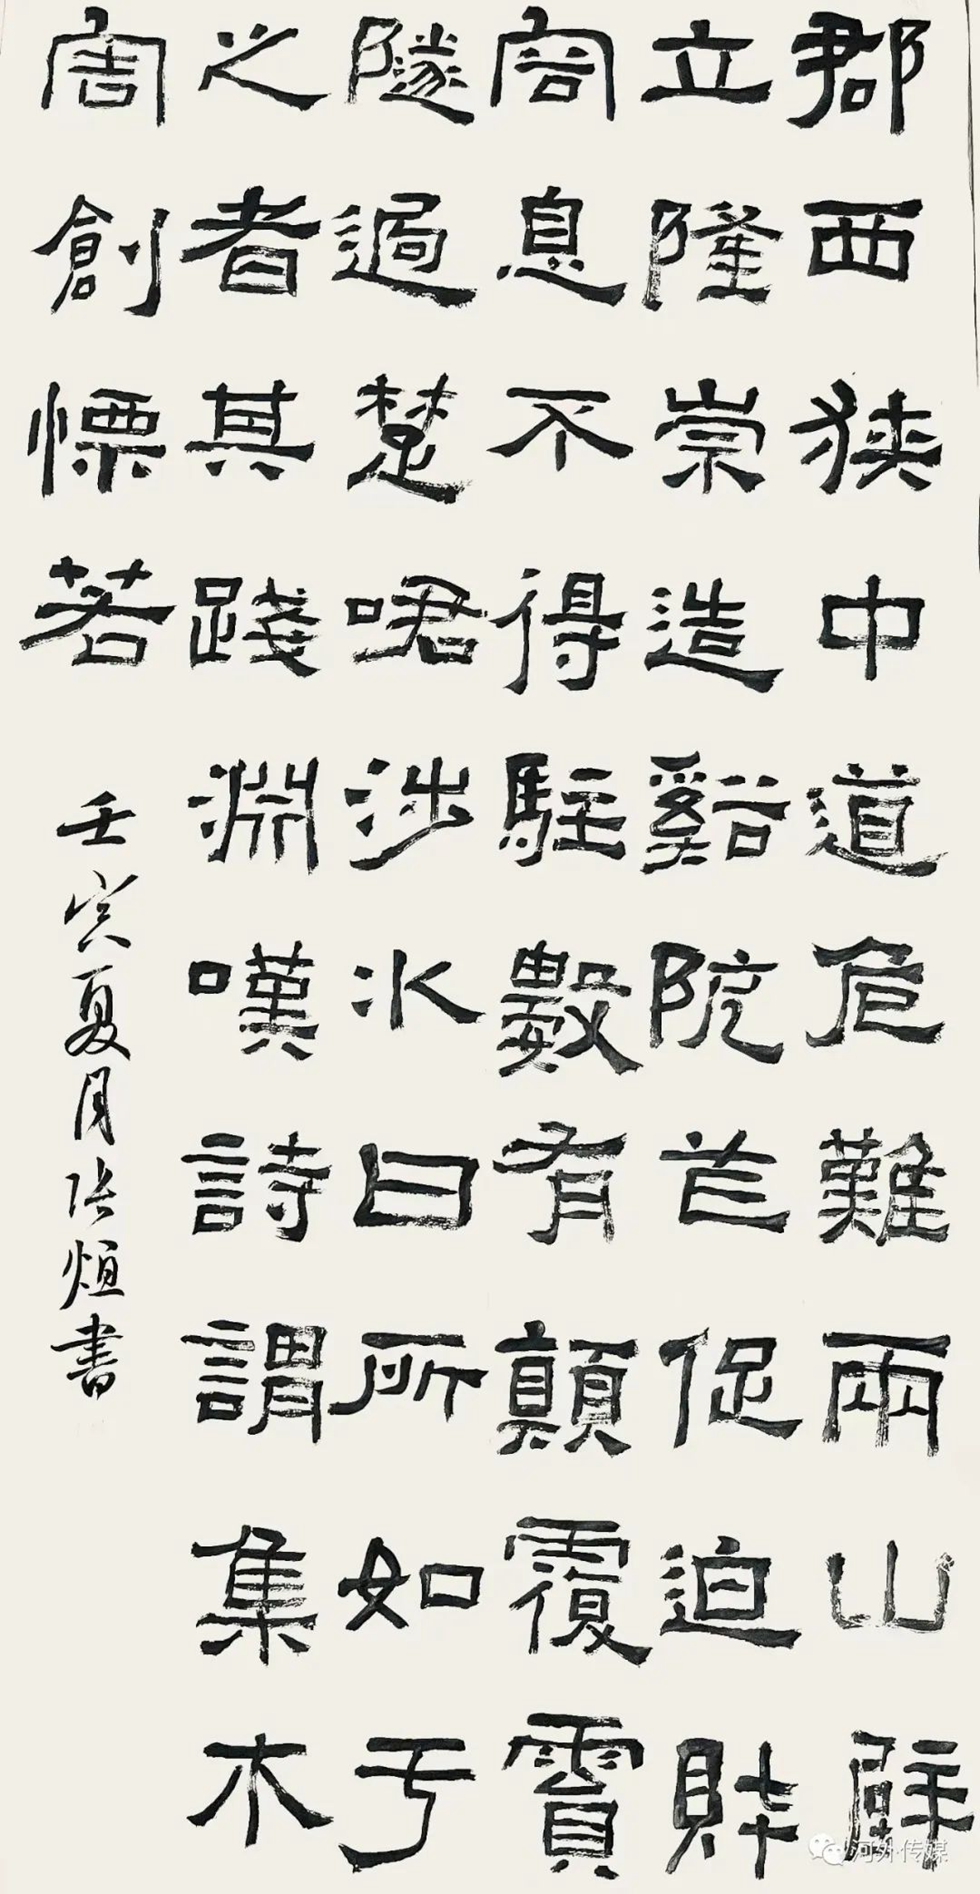 郡西狹中道危難兩山壁
立隆崇造谿阨笮促迫財
容息不得駐數有顛覆霣
隧過楚涉冰曰所如于
之者其踐淵嘆詩謂集木
害創慄若
壬寅夏月張烜書
河外传媒